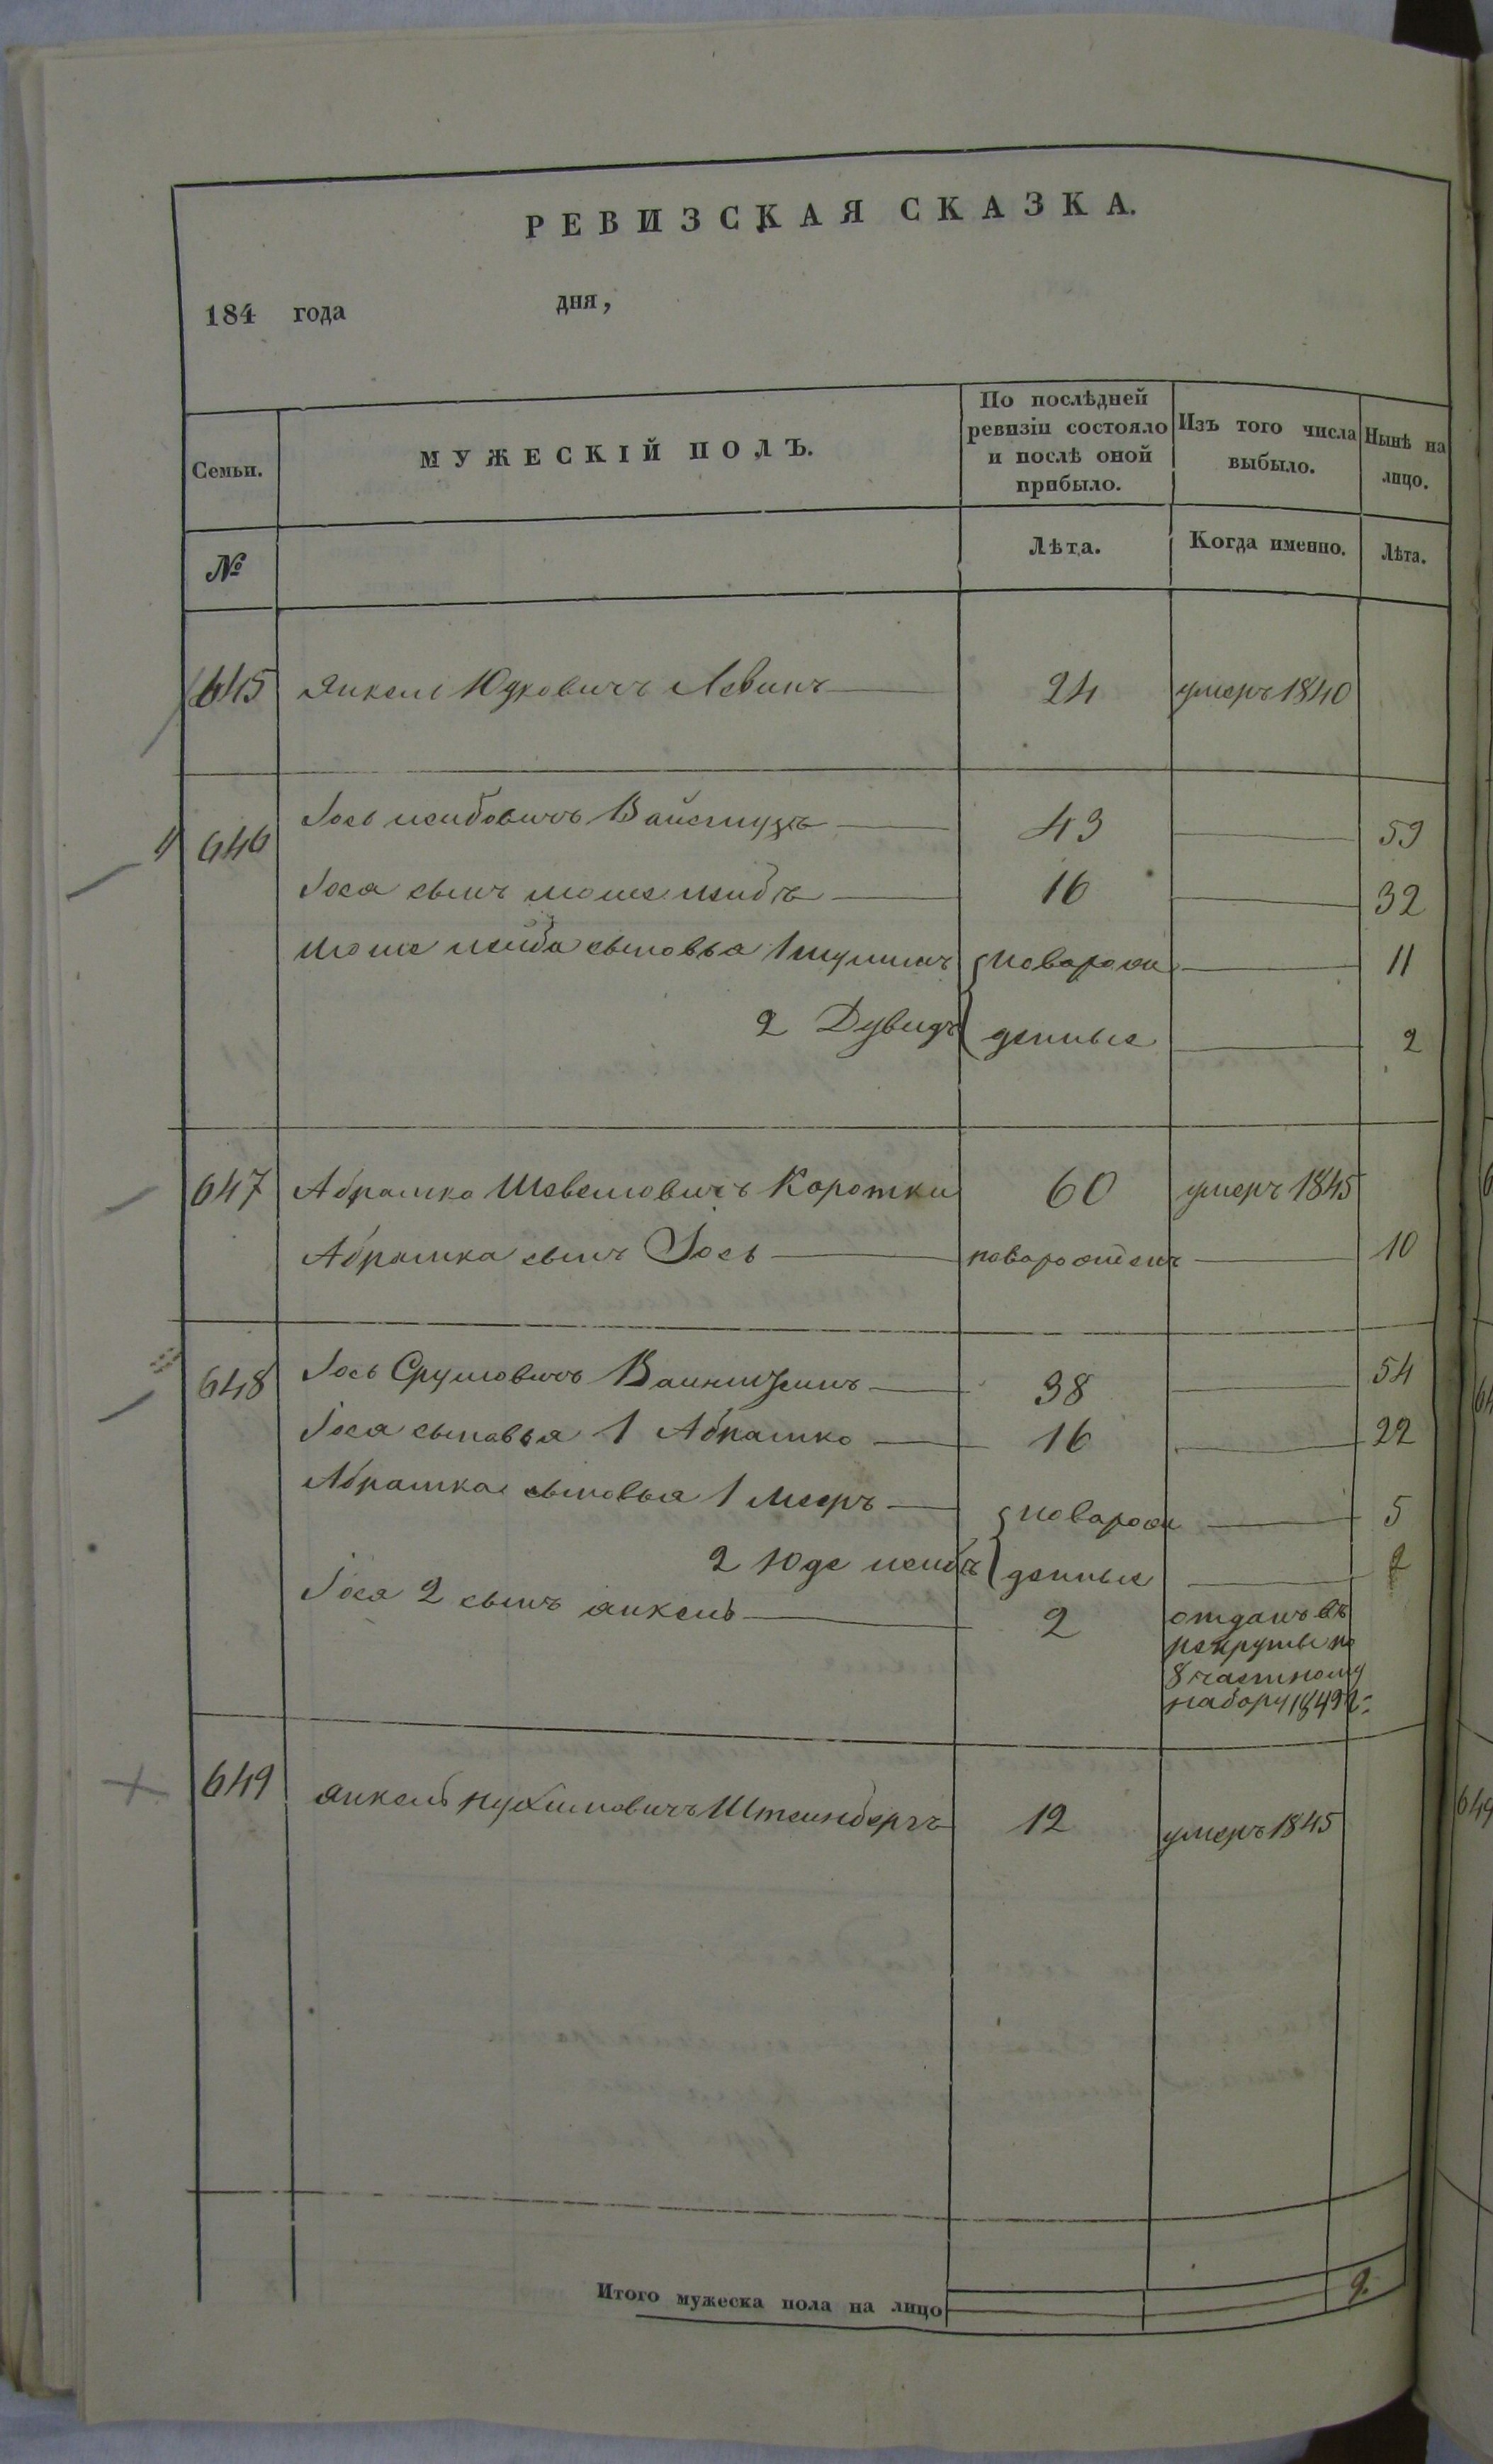 РЕВИЗСКАЯ СКАЗКА.
184 года дня,
Семьи.
МУЖЕСКІЙ ПОЛЪ.
По послѣдней ревизіи состояло и послѣ оной прибыло.
Изъ того числа выбыло.
Нынѣ на лицо.
№
Лѣта.
Когда именно.
Лѣта.
645 Янкель Юдковичъ Левинъ 24 умеръ 1840
646 Іось 43 59
Іоса сынъ Моше 16 32
Моше сыновья 1 новарож 11
2 Дувидъ денные 2
647 Абрашко Коротки 60 умеръ 1845
Абрашка сынъ Іось новарожденъ 10
648 Іось Срулювичъ 38 54
Іося сыновья 1 Абрашко 16 22
Абрашка сыновья 1 Мееръ новарож 5
2 Юде денные 2
Іося 2 сынъ янкель 2 отданъ въ
рекруты по
8 частному
набору 1849 г:
649 янкель Штеинбергъ 12 умеръ 1845
Итого мужеска пола на лицо 9.